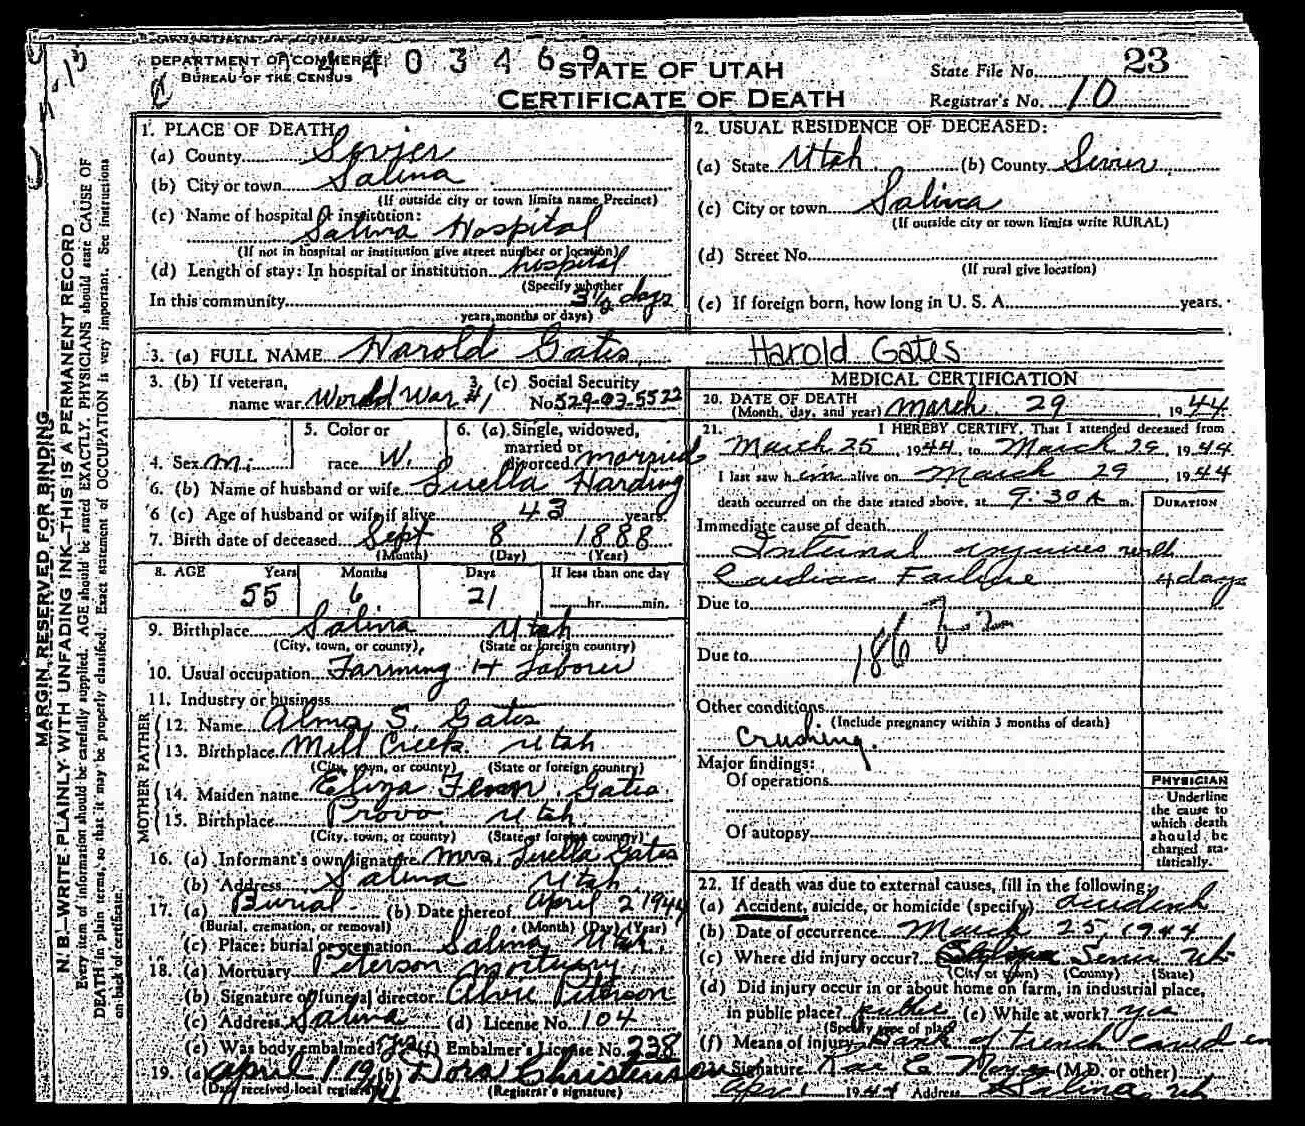 DEPARTMENT OF COMMERCE
BUREAU OF THE CENSUS
4403469
STATE OF UTAH
CERTIFICATE OF DEATH
State File No. 23
Registrar's No. 10
1. PLACE OF DEATH
(a) County Sevier
(b) City or town Salina
(If outside city or town limits name Precinct)
(c) Name of hospital or institution:
Salina Hospital
(If not in hospital or institution give street number or location)
(d) Length of stay: In hospital or institution hospital
(Specify whether
In this community 3½ days
years, months or days)
2. USUAL RESIDENCE OF DECEASED:
(a) State Utah (b) County Sevier
(c) City or town Salina
(If outside city or town limits write RURAL)
(d) Street No.
(If rural give location)
(e) If foreign born, how long in U. S. A. years.
3. (a) FULL NAME Harold Gates Harold Gates
3. (b) If veteran, name war World War #1
3. (c) Social Security No. 529-03-5522
4. Sex m.
5. Color or race W.
6. (a) Single, widowed, married or divorced married
6. (b) Name of husband or wife Luella Harding
6 (c) Age of husband or wife if alive 43 years.
7. Birth date of deceased Sept 8 1888
(Month) (Day) (Year)
8. AGE Years Months Days If less than one day
55 6 21 hr. min.
9. Birthplace Salina Utah
(City, town, or county) (State or foreign country)
10. Usual occupation Farming + Laborer
11. Industry or business
FATHER
12. Name Alma S. Gates
13. Birthplace Mill Creek Utah
(City, town, or county) (State or foreign country)
MOTHER
14. Maiden name Eliza Gates
15. Birthplace Provo Utah
(City, town, or county) (State or foreign country)
16. (a) Informant's own signature Mrs. Luella Gates
(b) Address Salina Utah
17. (a) Burial (b) Date thereof April 2 1944
(Burial, cremation, or removal) (Month) (Day) (Year)
(c) Place: burial or cremation Salina, Utah.
18. (a) Mortuary Peterson Mortuary
(b) Signature of funeral director Alvie Peterson
(c) Address Salina (d) License No. 104
(e) Was body embalmed? yes (f) Embalmer's License No. 238
19. (a) April 1 1944 (b) Dora Christenson
(Date received local registrar) (Registrar's signature)
MEDICAL CERTIFICATION
20. DATE OF DEATH
(Month, day, and year) March 29, 1944
21. I HEREBY CERTIFY, That I attended deceased from
March 25 1944, to March 29, 1944
I last saw him alive on March 29, 1944
death occurred on the date stated above, at 9:30 A m.
DURATION
Immediate cause of death
Internal injuries with
Cardiac Failure 4 days
Due to
Due to
186
Other conditions
(Include pregnancy within 3 months of death)
Crushing.
Major findings:
Of operations
Of autopsy
PHYSICIAN
Underline the cause to which death should be charged statistically.
22. If death was due to external causes, fill in the following:
(a) Accident, suicide, or homicide (specify) accident
(b) Date of occurrence March 25, 1944
(c) Where did injury occur? Salina Sevier Ut
(City or town) (County) (State)
(d) Did injury occur in or about home on farm, in industrial place,
in public place? public (e) While at work? yes
(Specify type of place)
(f) Means of injury Bank of trench caved in
Signature Rae E. Noyes (M.D. or other)
Apr 1 1944 Address Salina, Ut
MARGIN RESERVED FOR BINDING
N. B.—WRITE PLAINLY WITH UNFADING INK—THIS IS A PERMANENT RECORD
Every item of information should be carefully supplied. AGE should be stated EXACTLY. PHYSICIANS should state CAUSE OF
DEATH in plain terms, so that it may be properly classified. Exact statement of OCCUPATION is very important. See instructions
on back of certificate.